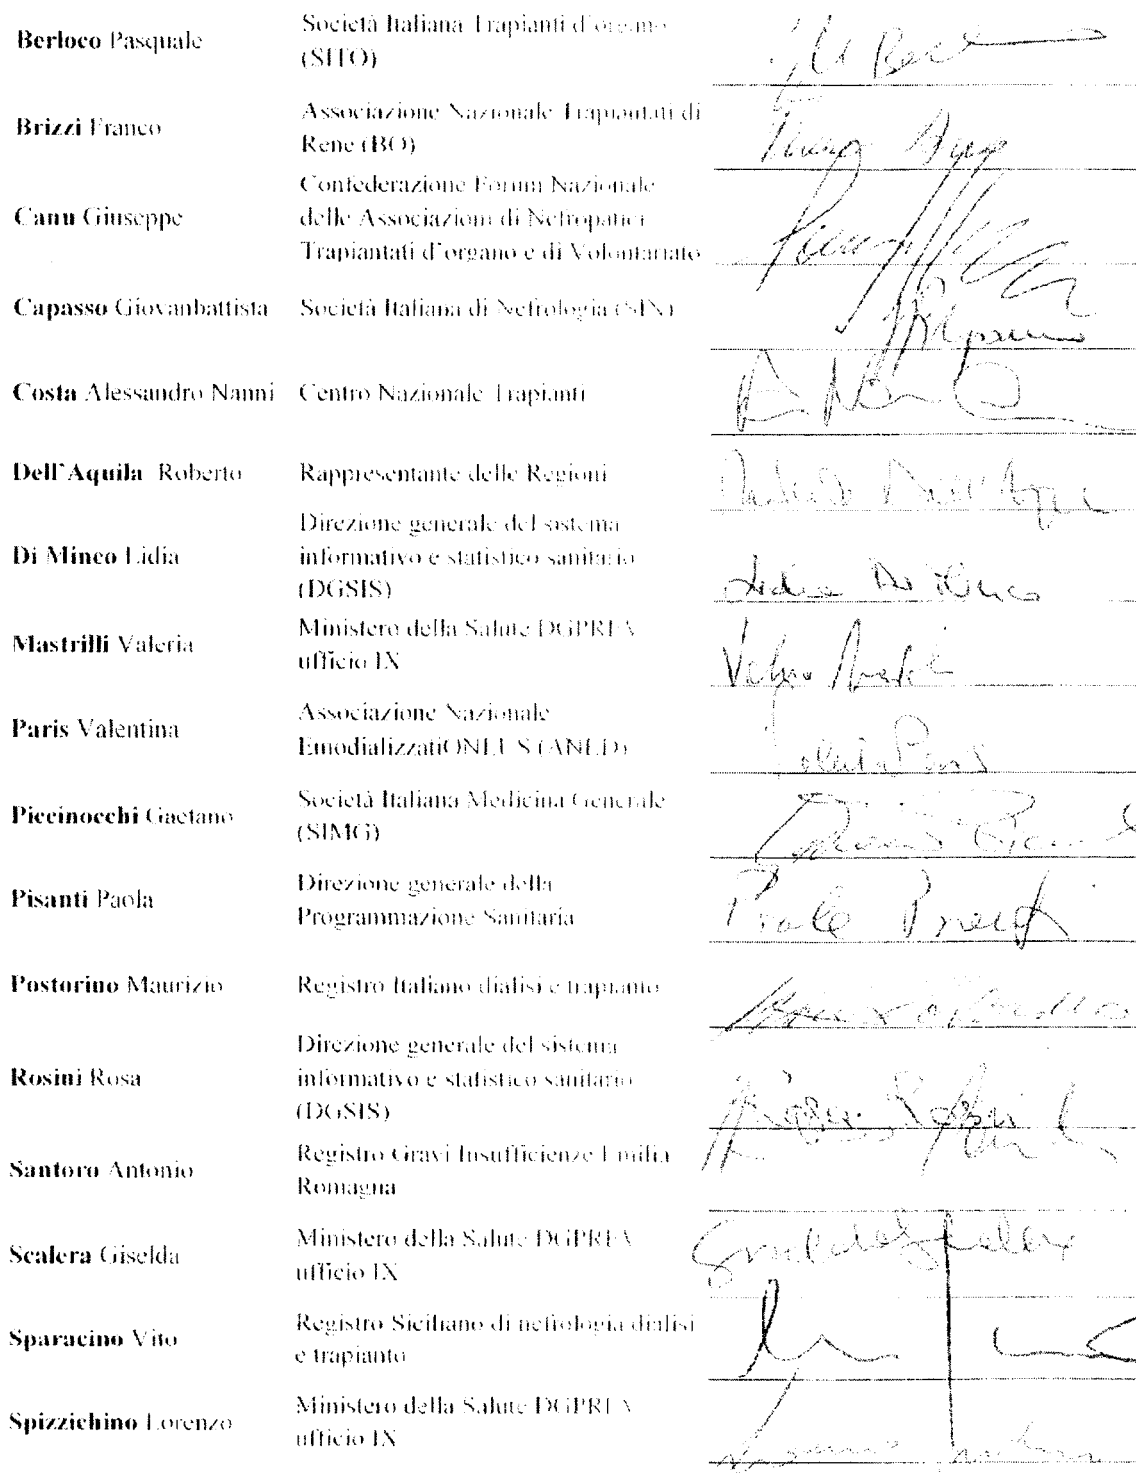 Berloco Pasquale
Società Italiana Trapianti d'organo
(SITO)
Brizzi Franco
Associazione Nazionale Trapiantati di
Rene (BO)
Canu Giuseppe
Confederazione Forum Nazionale
delle Associazioni di Nefropatici
Trapiantati d'organo e di Volontariato
Capasso Giovanbattista
Società Italiana di Nefrologia (SIN)
Costa Alessandro Nanni
Centro Nazionale Trapianti
Dell'Aquila Roberto
Rappresentante delle Regioni
Di Minco Lidia
Direzione generale del sistema
informativo e statistico sanitario
(DGSIS)
Mastrilli Valeria
Ministero della Salute DGPREV
ufficio IX
Paris Valentina
Associazione Nazionale
EmodializzatiONLUS (ANED)
Piccinocchi Gaetano
Società Italiana Medicina Generale
(SIMG)
Pisanti Paola
Direzione generale della
Programmazione Sanitaria
Postorino Maurizio
Registro Italiano dialisi e trapianto
Rosini Rosa
Direzione generale del sistema
informativo e statistico sanitario
(DGSIS)
Santoro Antonio
Registro Gravi Insufficienze Emilia
Romagna
Scalera Giselda
Ministero della Salute DGPREV
ufficio IX
Sparacino Vito
Registro Siciliano di nefrologia dialisi
e trapianto
Spizzichino Lorenzo
Ministero della Salute DGPREV
ufficio IX